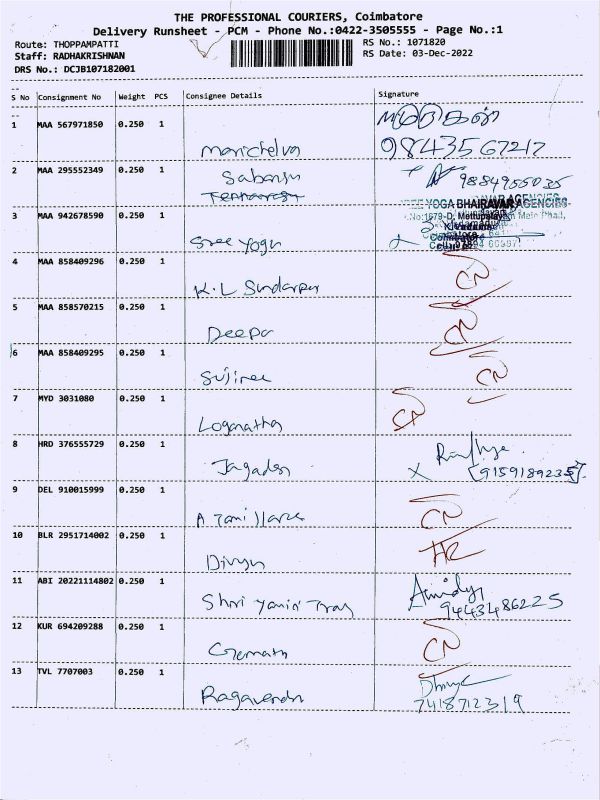 THE PROFESSIONAL COURIERS, Coimbatore
Delivery Runsheet - PCM - Phone No.:0422-3505555 - Page No.:1
Route: THOPPAMPATTI
RS No.: 1071820
Staff: RADHAKRISHNAN
RS Date: 03-Dec-2022
DRS No.: DCJB107182001
S No Consignment No Weight PCS Consignee Details Signature
1 MAA 567971850 0.250 1
முருகன்
Marichelva 9843567217
2 MAA 295552349 0.250 1
9884955035
3 MAA 942678590 0.250 1
SREE YOGA BHAIRAVAR AGENCIES
Sree Yoga
4 MAA 858409296 0.250 1
K.L Sundarpa CN
5 MAA 858570215 0.250 1
Deepa CN
6 MAA 858409295 0.250 1
Sujiree CN
7 MYD 3031080 0.250 1
Loganatha CN
8 HRD 376555729 0.250 1
Jagades X [9159189235]
9 DEL 910015999 0.250 1
CN
10 BLR 2951714002 0.250 1
Divya
11 ABI 20221114802 0.250 1
Shri 9443486225
12 KUR 694209288 0.250 1
CN
13 TVL 7707003 0.250 1
Ragavendr 7418712319